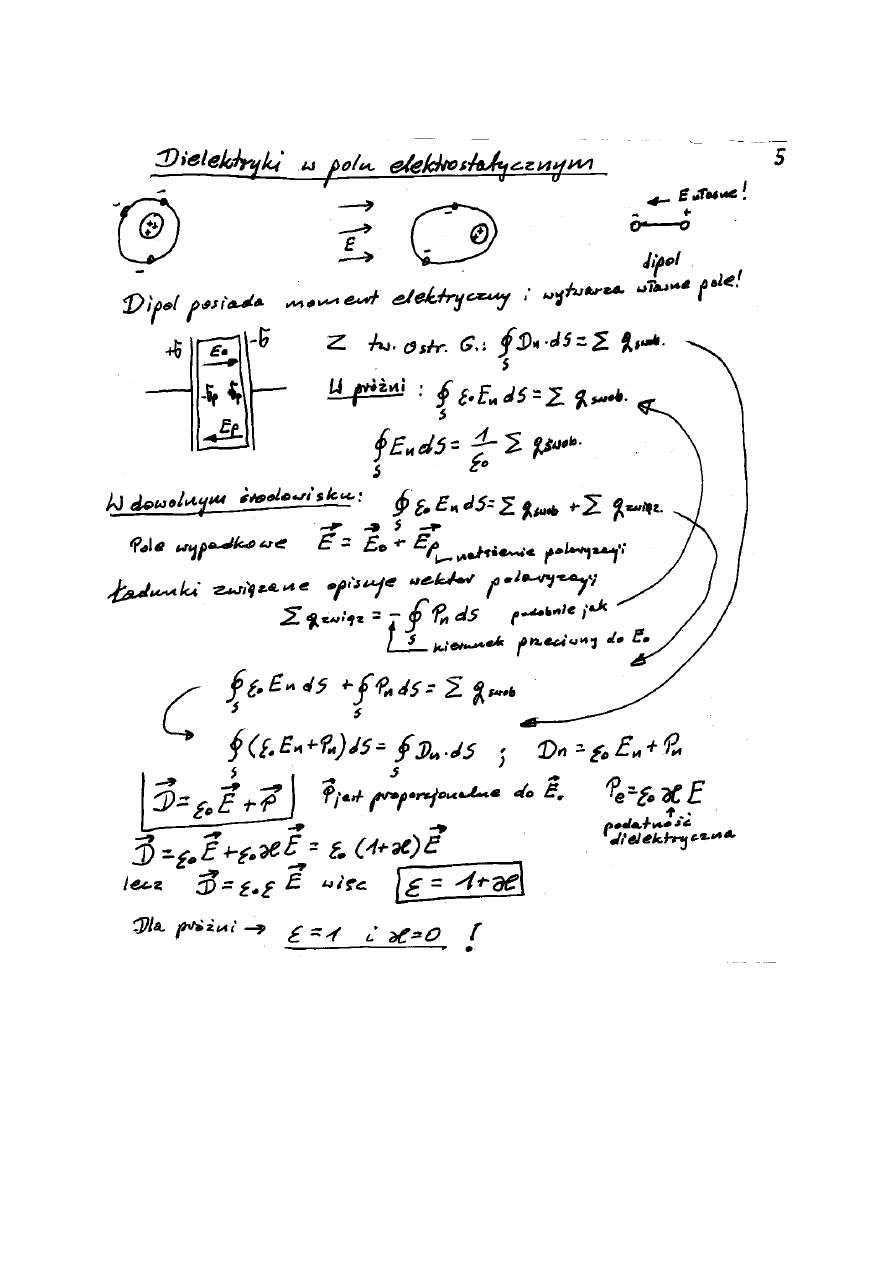 5
Dielektryki w polu elektrostatycznym
- - - ++ ++ E - - ← E własne!
- +
dipol
Dipol posiada moment elektryczny i wytwarza własne pole!
+σ -σ E₀ -σp σp Ep
Z tw. Ostr. G.: ∮S Dn·dS = Σ qswob.
W próżni: ∮S ε₀EndS = Σ qswob.
∮S EndS = 1/ε₀ Σ qswob.
W dowolnym środowisku: ∮S ε₀EndS = Σ qswob + Σ qzwiąz.
Pole wypadkowe E⃗ = E⃗₀ + E⃗p natężenie polaryzacji
Ładunki związane opisuje wektor polaryzacji
Σ qzwiąz = - ∮S Pn dS podobnie jak
kierunek przeciwny do E₀
∮S ε₀EndS + ∮S PndS = Σ qswob
∮S (ε₀En + Pn)dS = ∮S Dn·dS ; Dn = ε₀En + Pn
D⃗ = ε₀E⃗ + P⃗ P⃗ jest proporcjonalne do E⃗. Pe = ε₀æE
podatność
dielektryczna
D⃗ = ε₀E⃗ + ε₀æE⃗ = ε₀(1+æ)E⃗
lecz D⃗ = ε₀εE⃗ więc ε = 1+æ
Dla próżni → ε=1 i æ=0 !